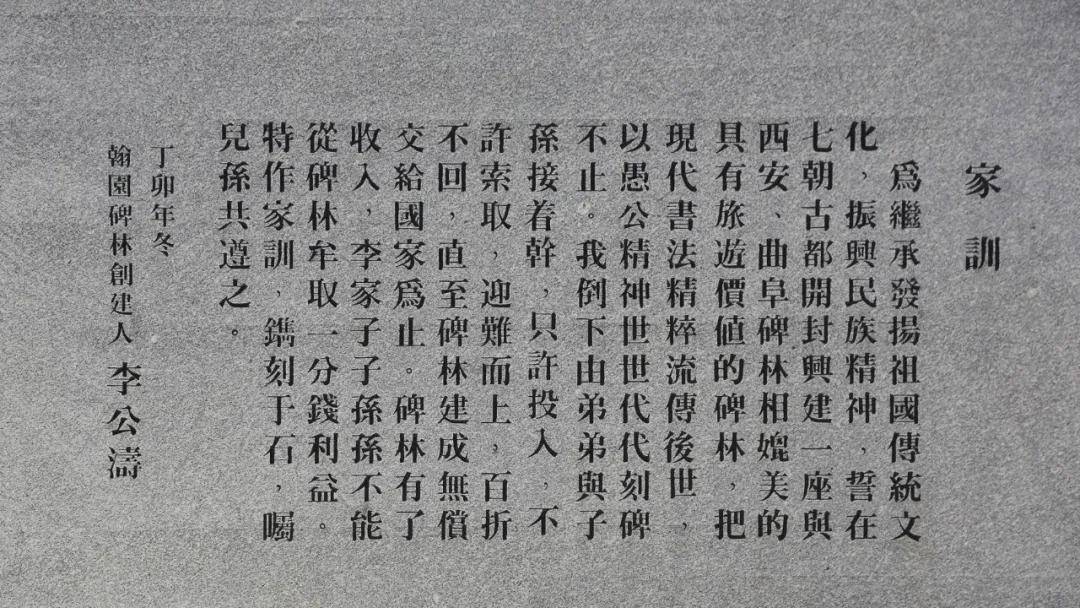 家訓
爲繼承發揚祖國傳統文
化，振興民族精神，誓在
七朝古都開封興建一座與
西安、曲阜碑林相媲美的
具有旅遊價值的碑林，把
現代書法精粹流傳後世，
以愚公精神世世代代刻碑
不止。我倒下由弟弟與子
孫接着幹，只許投入，不
許索取，迎難而上，百折
不回，直至碑林建成無償
交給國家爲止。碑林有了
收入，李家子子孫孫不能
從碑林牟取一分錢利益。
特作家訓，鐫刻于石，囑
兒孫共遵之。
丁卯年冬
翰園碑林創建人 李公濤